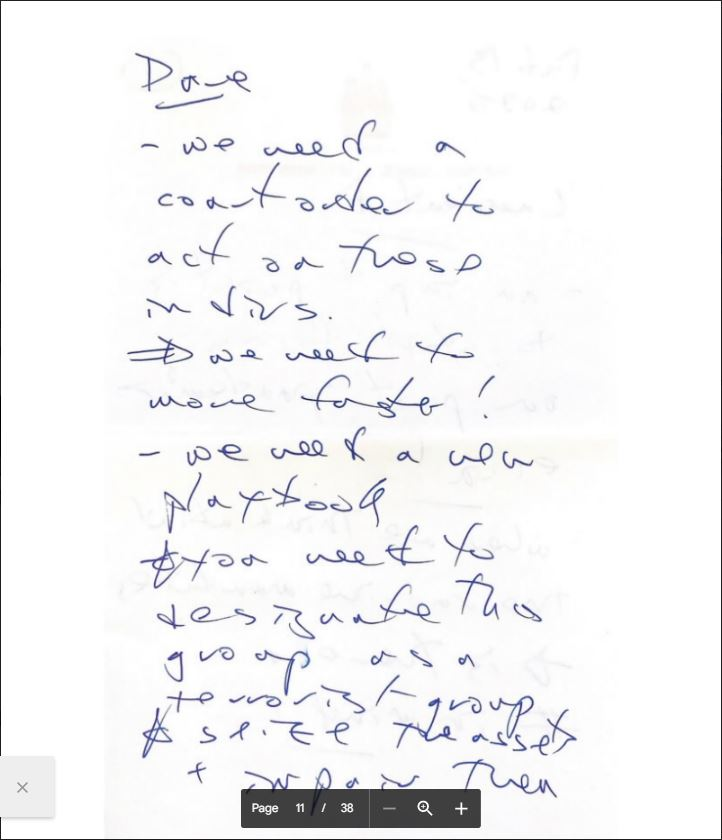 Dave
- we need a
court order to
act on those
indivs.
⇒ we need to
move faster!
- we need a new
playbook
* you need to
designate this
group as a
terrorist group
* seize the assets
+ impair them
Page 11 / 38